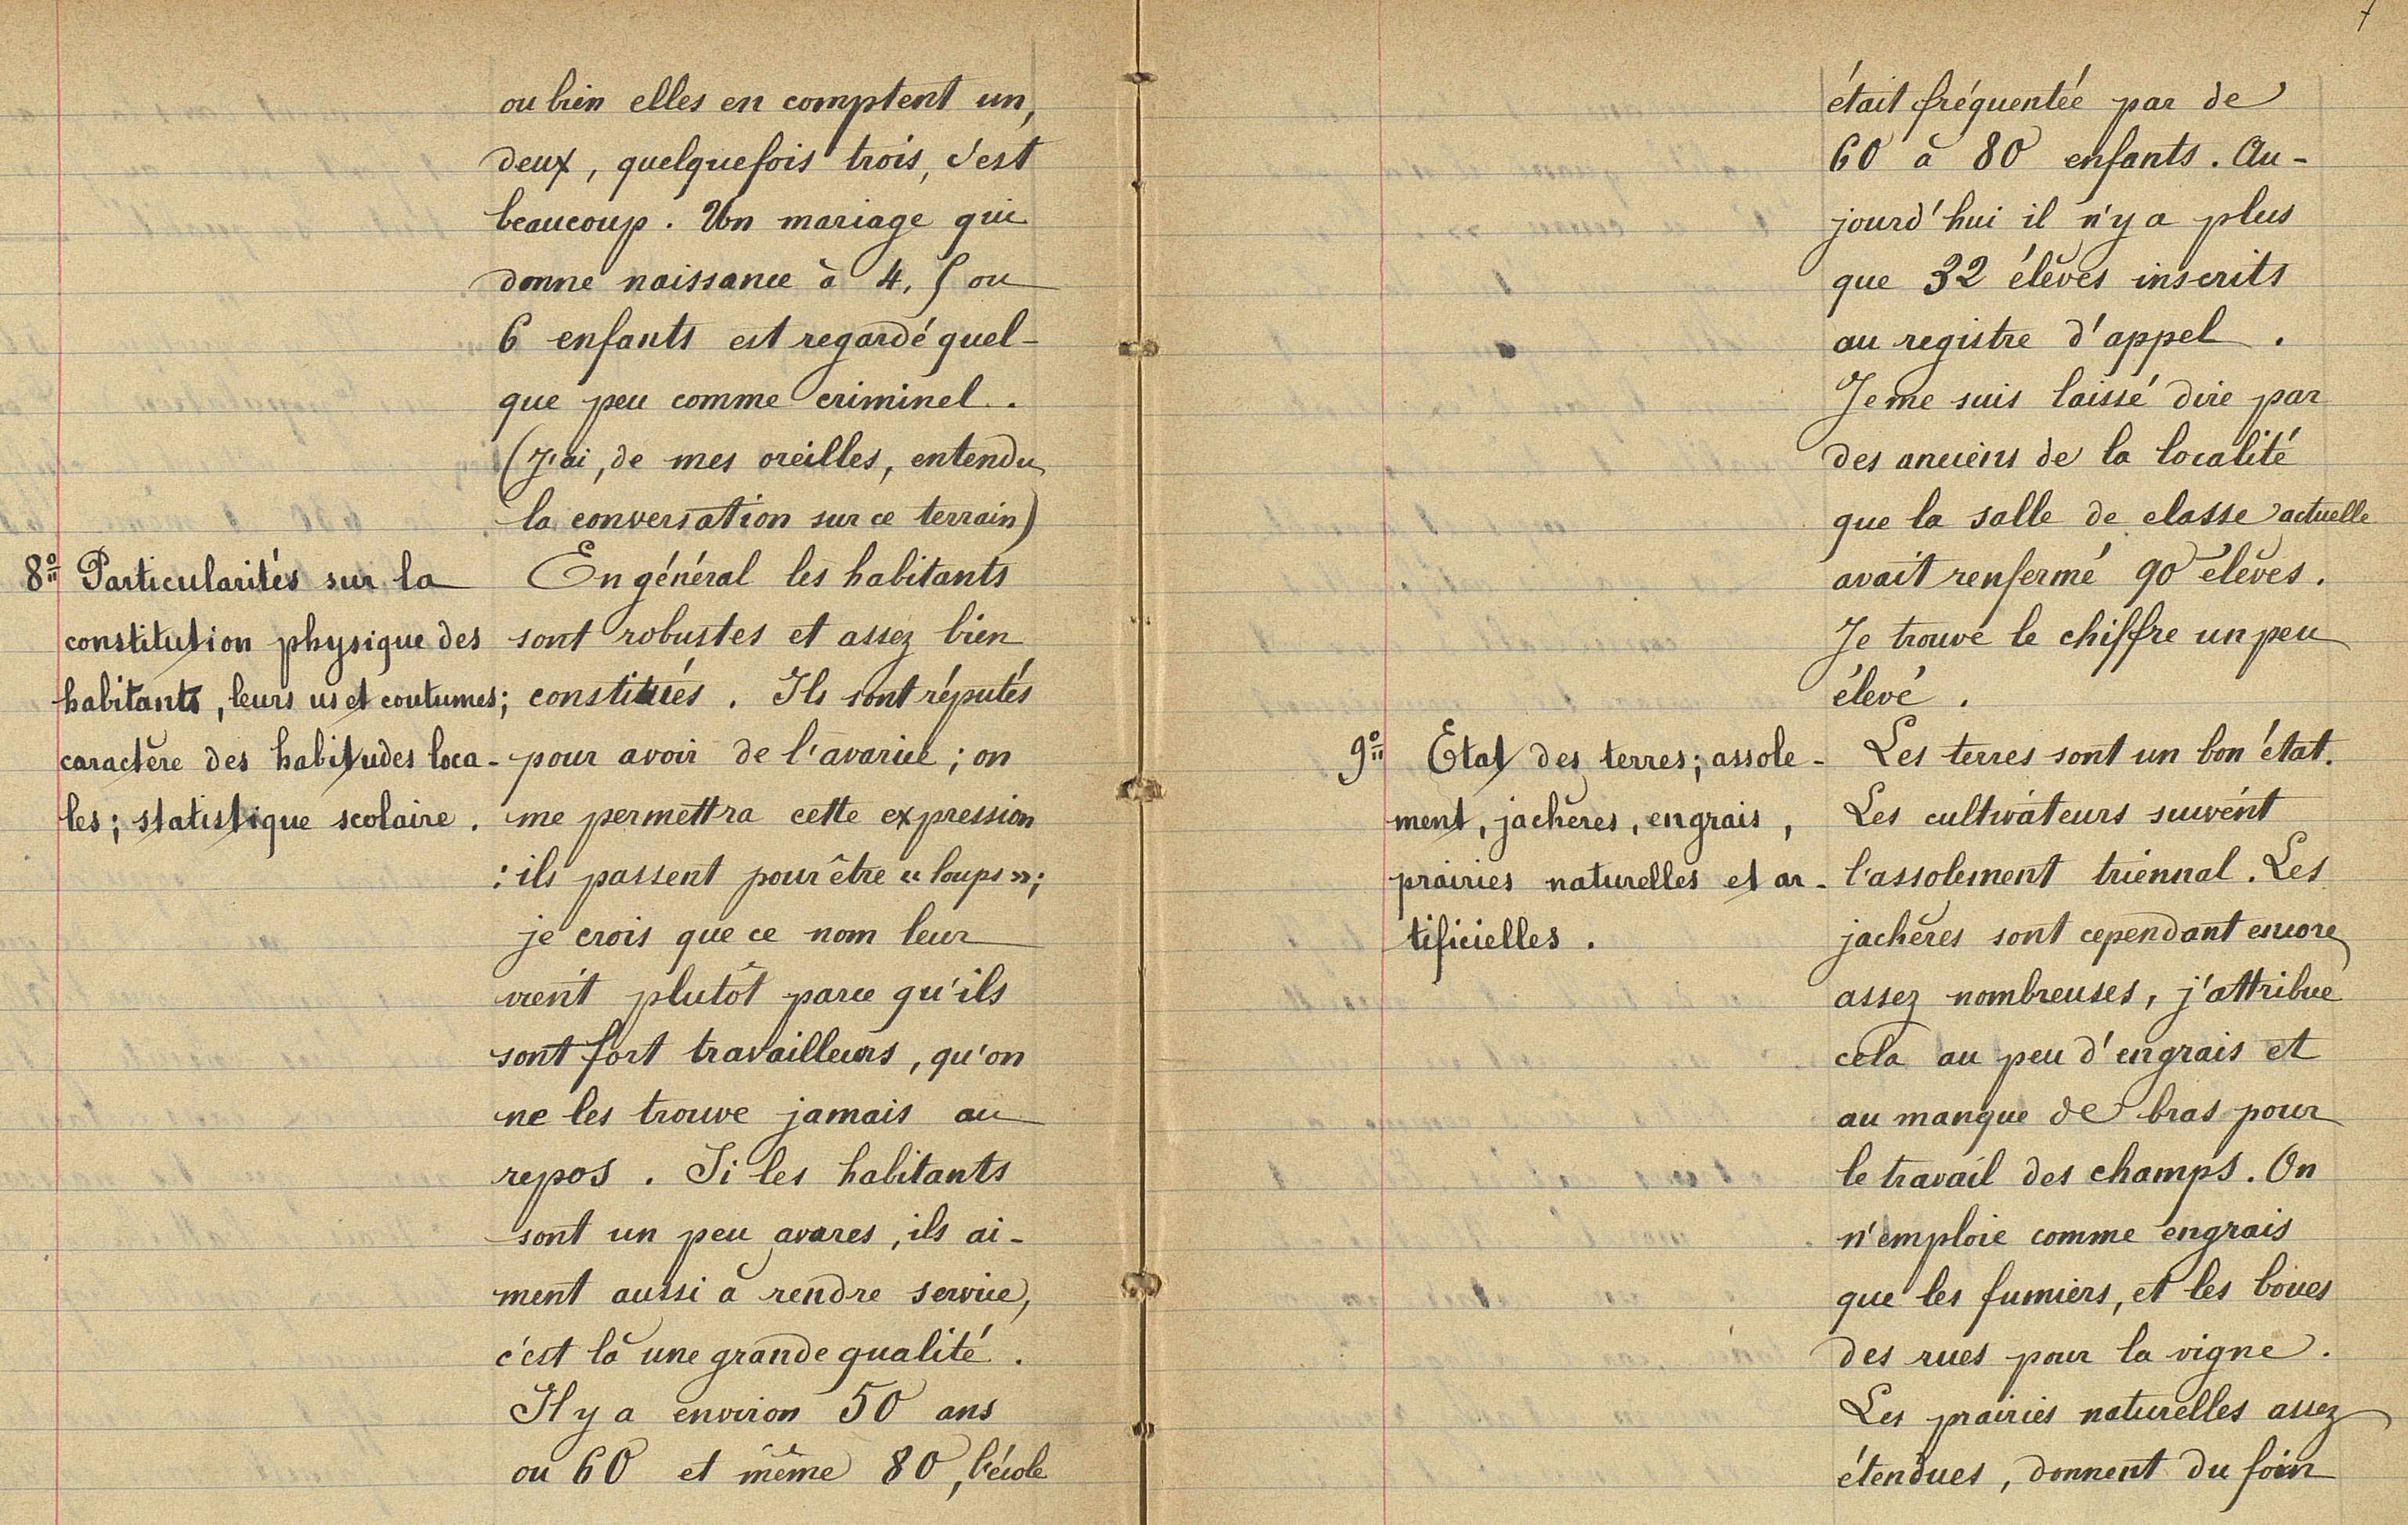 ou bien elles en comptent un,
deux, quelquefois trois, c'est
beaucoup. Un mariage qui
donne naissance à 4, 5 ou
6 enfants est regardé quel-
que peu comme criminel.
(J'ai, de mes oreilles, entendu
la conversation sur ce terrain)
8º Particularités sur la
constitution physique des
habitants, leurs us et coutumes;
caractère des habitudes loca-
les; statistique scolaire.
En général les habitants
sont robustes et assez bien
constitués. Ils sont réputés
pour avoir de l'avarice; on
me permettra cette expression
: ils passent pour être « loups »;
je crois que ce nom leur
vient plutôt parce qu'ils
sont fort travailleurs, qu'on
ne les trouve jamais au
repos. Si les habitants
sont un peu avares, ils ai-
ment aussi à rendre service,
c'est là une grande qualité.
Il y a environ 50 ans
ou 60 et même 80, l'école
7
était fréquentée par de
60 à 80 enfants. Au-
jourd'hui il n'y a plus
que 32 élèves inscrits
au registre d'appel.
Je me suis laissé dire par
des anciens de la localité
que la salle de classe actuelle
avait renfermé 90 élèves.
Je trouve le chiffre un peu
élevé.
9º Etat des terres; assole-
ment, jachères, engrais,
prairies naturelles et ar-
tificielles.
Les terres sont un bon état.
Les cultivateurs suivent
l'assolement triennal. Les
jachères sont cependant encore
assez nombreuses, j'attribue
cela au peu d'engrais et
au manque de bras pour
le travail des champs. On
n'emploie comme engrais
que les fumiers, et les boues
des rues pour la vigne.
Les prairies naturelles assez
étendues, donnent du foin